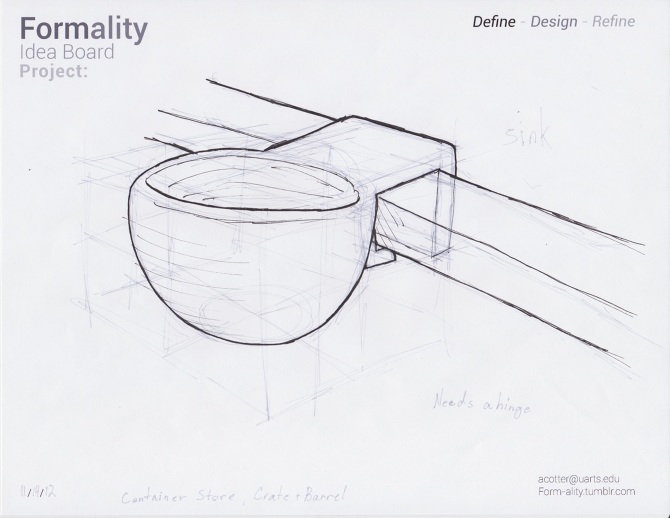 Formality
Idea Board
Project:
Define - Design - Refine
sink
Needs a hinge
Container Store, Crate + Barrel
acotter@uarts.edu
Form-ality.tumblr.com